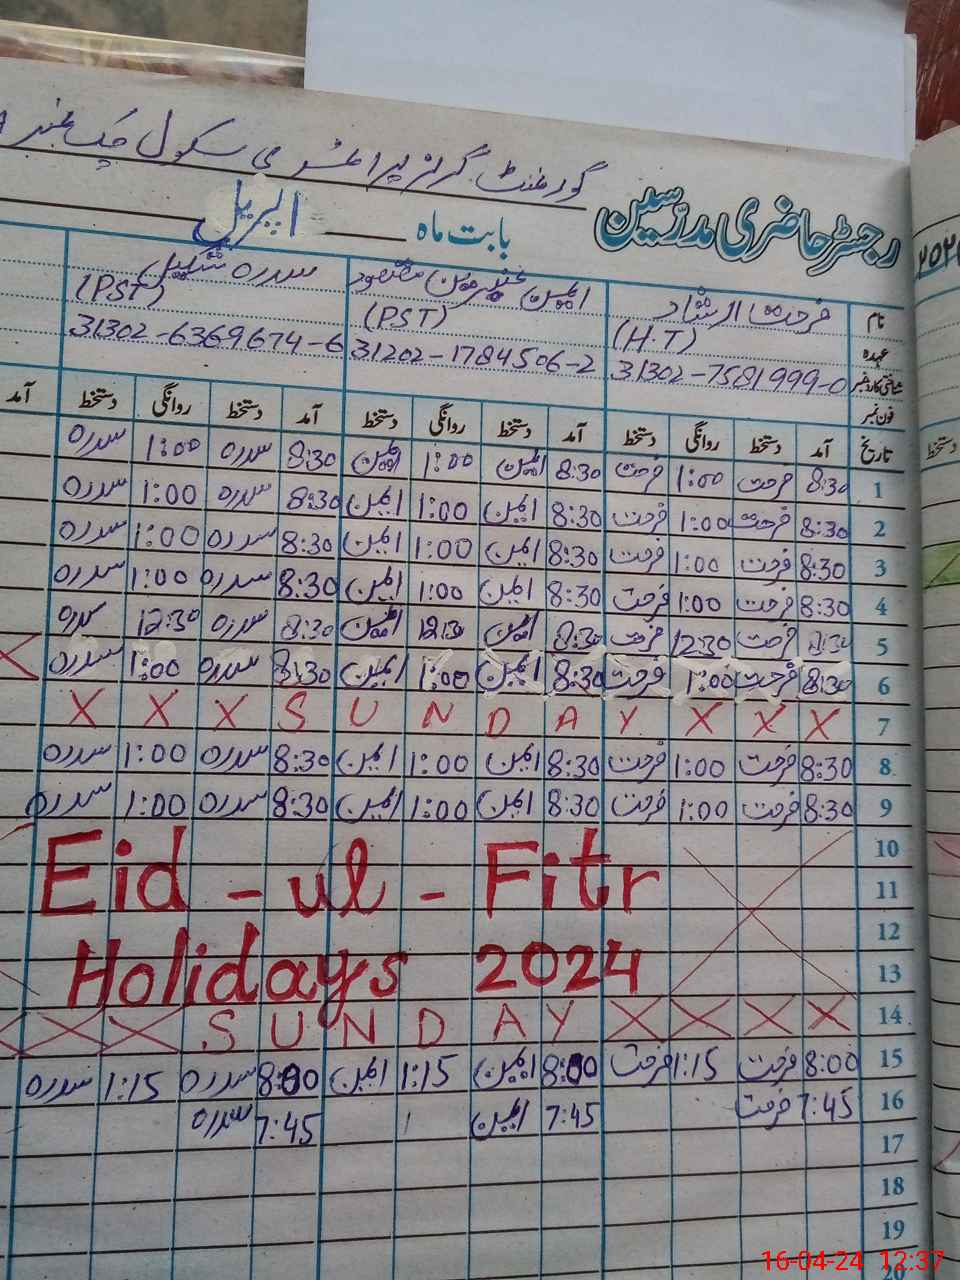 گورنمنٹ گرلز پرائمری سکول چک نمبر
رجسٹر حاضری مدرسین
بابت ماہ اپریل
نام فرحت ارشاد ایمن سدرہ شکیل
عہدہ (H.T) (PST) (PST)
شناختی کارڈ نمبر 31302-7581999-0 31202-1784506-2 31302-6369674-6
فون نمبر
تاریخ آمد دستخط روانگی دستخط آمد دستخط روانگی دستخط آمد دستخط روانگی دستخط آمد
1 8:30 فرحت 1:00 فرحت 8:30 ایمن 1:00 ایمن 8:30 سدرہ 1:00 سدرہ
2 8:30 فرحت 1:00 فرحت 8:30 ایمن 1:00 ایمن 8:30 سدرہ 1:00 سدرہ
3 8:30 فرحت 1:00 فرحت 8:30 ایمن 1:00 ایمن 8:30 سدرہ 1:00 سدرہ
4 8:30 فرحت 1:00 فرحت 8:30 ایمن 1:00 ایمن 8:30 سدرہ 1:00 سدرہ
5 8:30 فرحت 12:30 فرحت 8:30 ایمن 12:30 ایمن 8:30 سدرہ 12:30 سدرہ
6 8:30 فرحت 1:00 فرحت 8:30 ایمن 1:00 ایمن 8:30 سدرہ 1:00 سدرہ
7 X X X S U N D A Y X X X
8 8:30 فرحت 1:00 فرحت 8:30 ایمن 1:00 ایمن 8:30 سدرہ 1:00 سدرہ
9 8:30 فرحت 1:00 فرحت 8:30 ایمن 1:00 ایمن 8:30 سدرہ 1:00 سدرہ
10
11 Eid-ul-Fitr
12
13 Holidays 2024
14 X X X S U N D A Y X X X X
15 8:00 فرحت 1:15 فرحت 8:00 ایمن 1:15 ایمن 8:00 سدرہ 1:15 سدرہ
16 7:45 فرحت 7:45 ایمن 7:45 سدرہ
17
18
19
دستخط
16-04-24 12:37